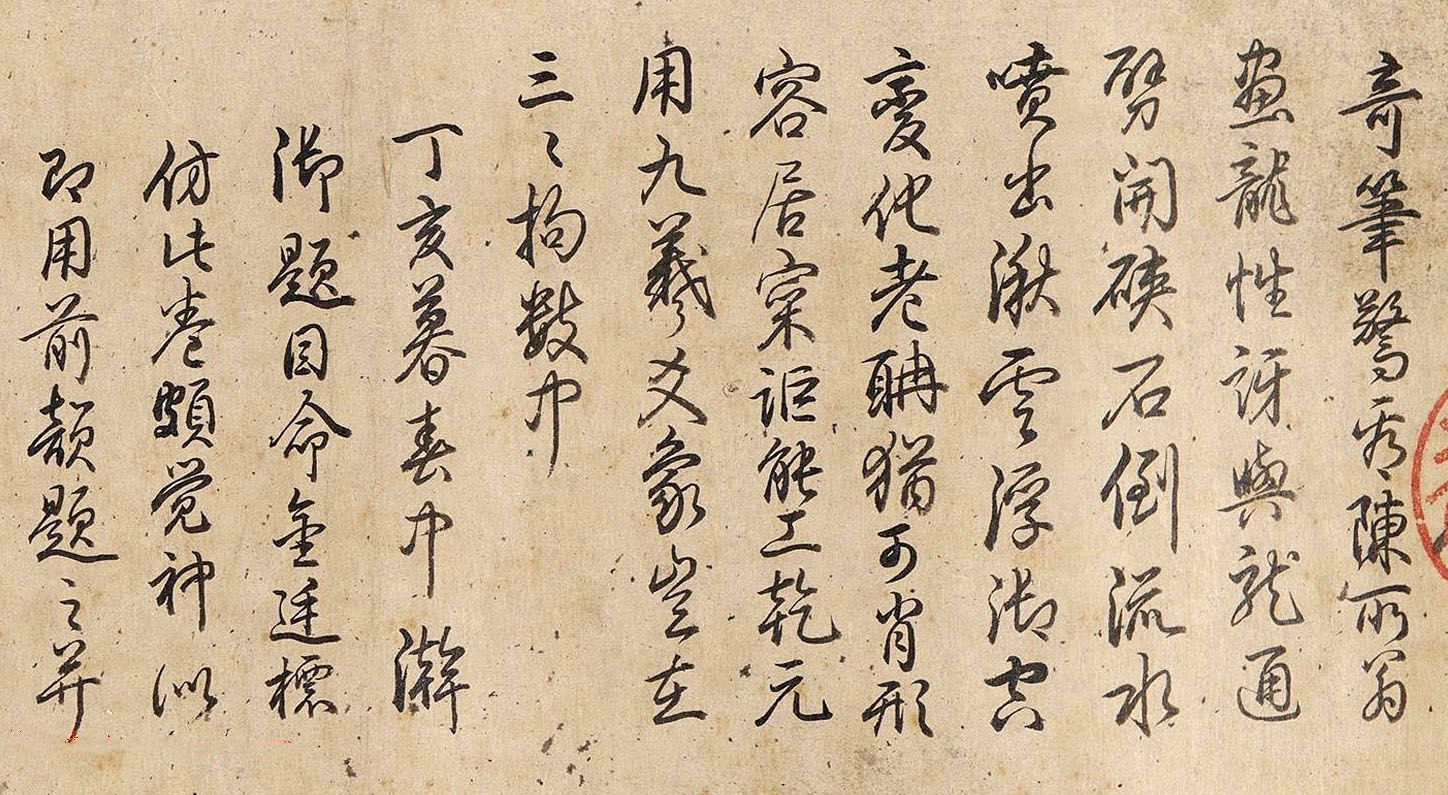 奇筆驚看陳所翁
畫龍性訝與龍通
劈開硤石倒流水
噴出湫雲浮御空
變化老聃猶可肖形
容居寀詎能工乾元
用九羲爻象豈在
三〻拘數中
丁亥暮春中澣
御題因命金廷標
仿此卷頗覺神似
即用前韻題之并